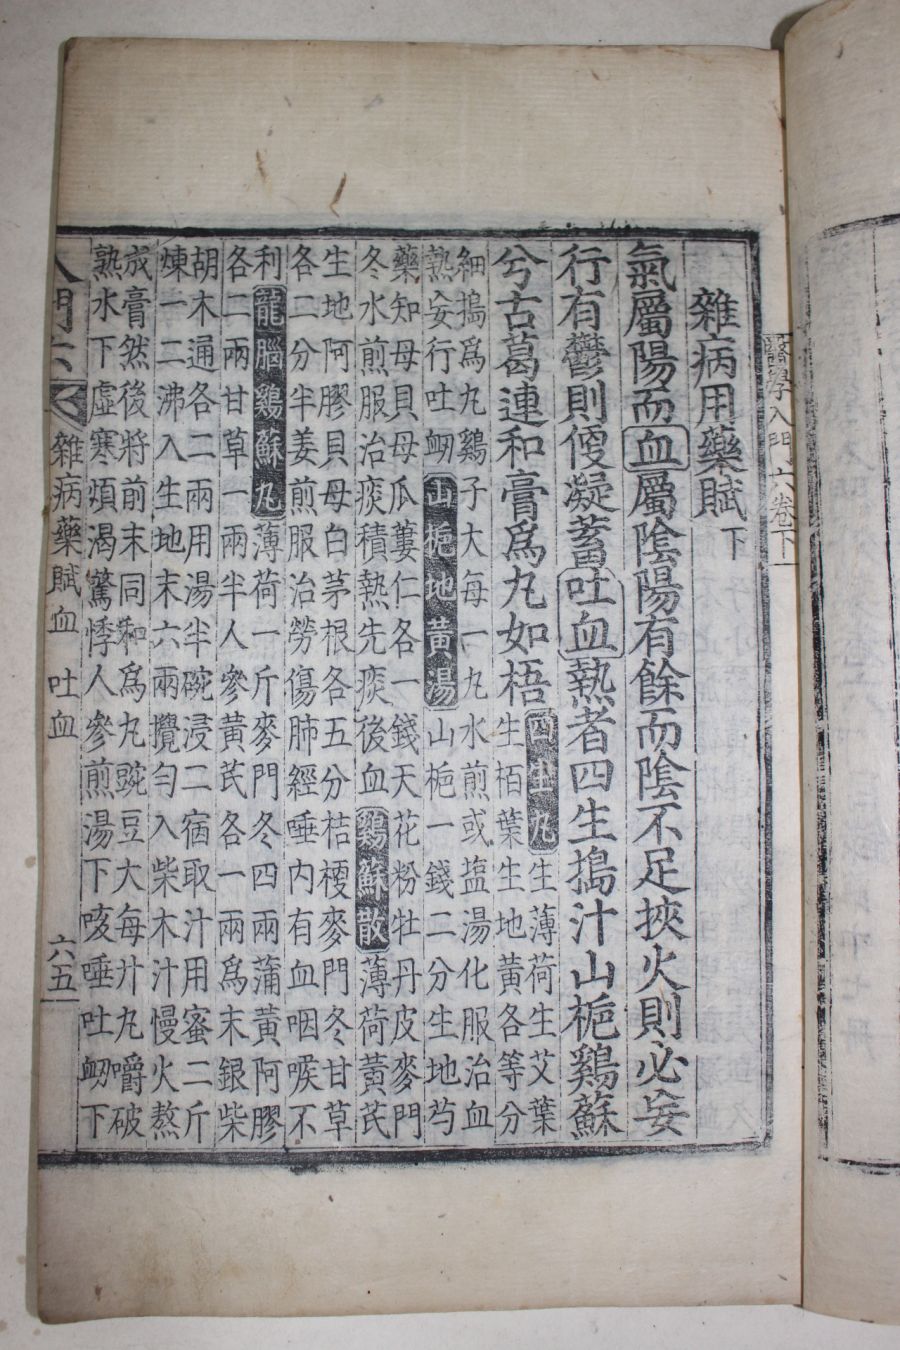 醫學入門 六卷下
雜病用藥賦下
氣屬陽而血屬陰陽有餘而陰不足挾火則必妄
行有鬱則便凝蓄吐血熱者四生搗汁山梔鷄蘇
兮古葛連和膏爲丸如梧四生丸生薄荷生艾葉
生栢葉生地黃各等分
細搗爲丸鷄子大每一丸水煎或塩湯化服治血
熱妄行吐衂山梔地黃湯山梔一錢二分生地芍
藥知母貝母瓜蔞仁各一錢天花粉牡丹皮麥門
冬水煎服治痰積熱先痰後血鷄蘇散薄荷黃芪
生地阿膠貝母白茅根各五分桔梗麥門冬甘草
各二分半姜煎服治勞傷肺經唾內有血咽喉不
利龍腦鷄蘇丸薄荷一斤麥門冬四兩蒲黃阿膠
各二兩甘草一兩半人參黃芪各一兩爲末銀柴
胡木通各二兩用湯半碗浸二宿取汁用蜜二斤
煉一二沸入生地末六兩攪勻入柴木汁慢火熬
成膏然後將前末同和爲丸豌豆大每廾丸嚼破
熟水下虛寒煩渴驚悸人參煎湯下咳唾吐衂下
入門六 雜病藥賦血 吐血 六五